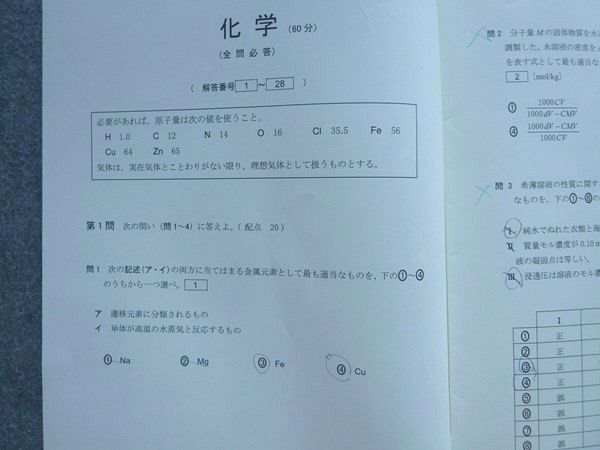 化学（60分）
（全問必答）
（解答番号 1 ～ 28 ）
必要があれば，原子量は次の値を使うこと。
H 1.0 C 12 N 14 O 16 Cl 35.5 Fe 56
Cu 64 Zn 65
気体は，実在気体とことわりがない限り，理想気体として扱うものとする。
第1問 次の問い（問1～4）に答えよ。（配点 20）
問1 次の記述（ア・イ）の両方に当てはまる金属元素として最も適当なものを，下の①～④
のうちから一つ選べ。 1
ア 遷移元素に分類されるもの
イ 単体が高温の水蒸気と反応するもの
① Na ② Mg ③ Fe ④ Cu
問2 分子量Mの固体物質を水
調製した。水溶液の密度を
を表す式として最も適当な
2 〔mol/kg〕
① 1000CV / 1000dV－CMV
④ 1000dV－CMV / 1000CV
問3 希薄溶液の性質に関す
なものを，下の①～⑧の
I 純水でぬれた衣類と海
II 質量モル濃度が0.10 m
液の凝固点は等しい。
III 浸透圧は溶液のモル濃
I
① 正
② 正
③ 正
④ 正
⑤ 誤
⑥ 誤
⑦ 誤
⑧ 誤